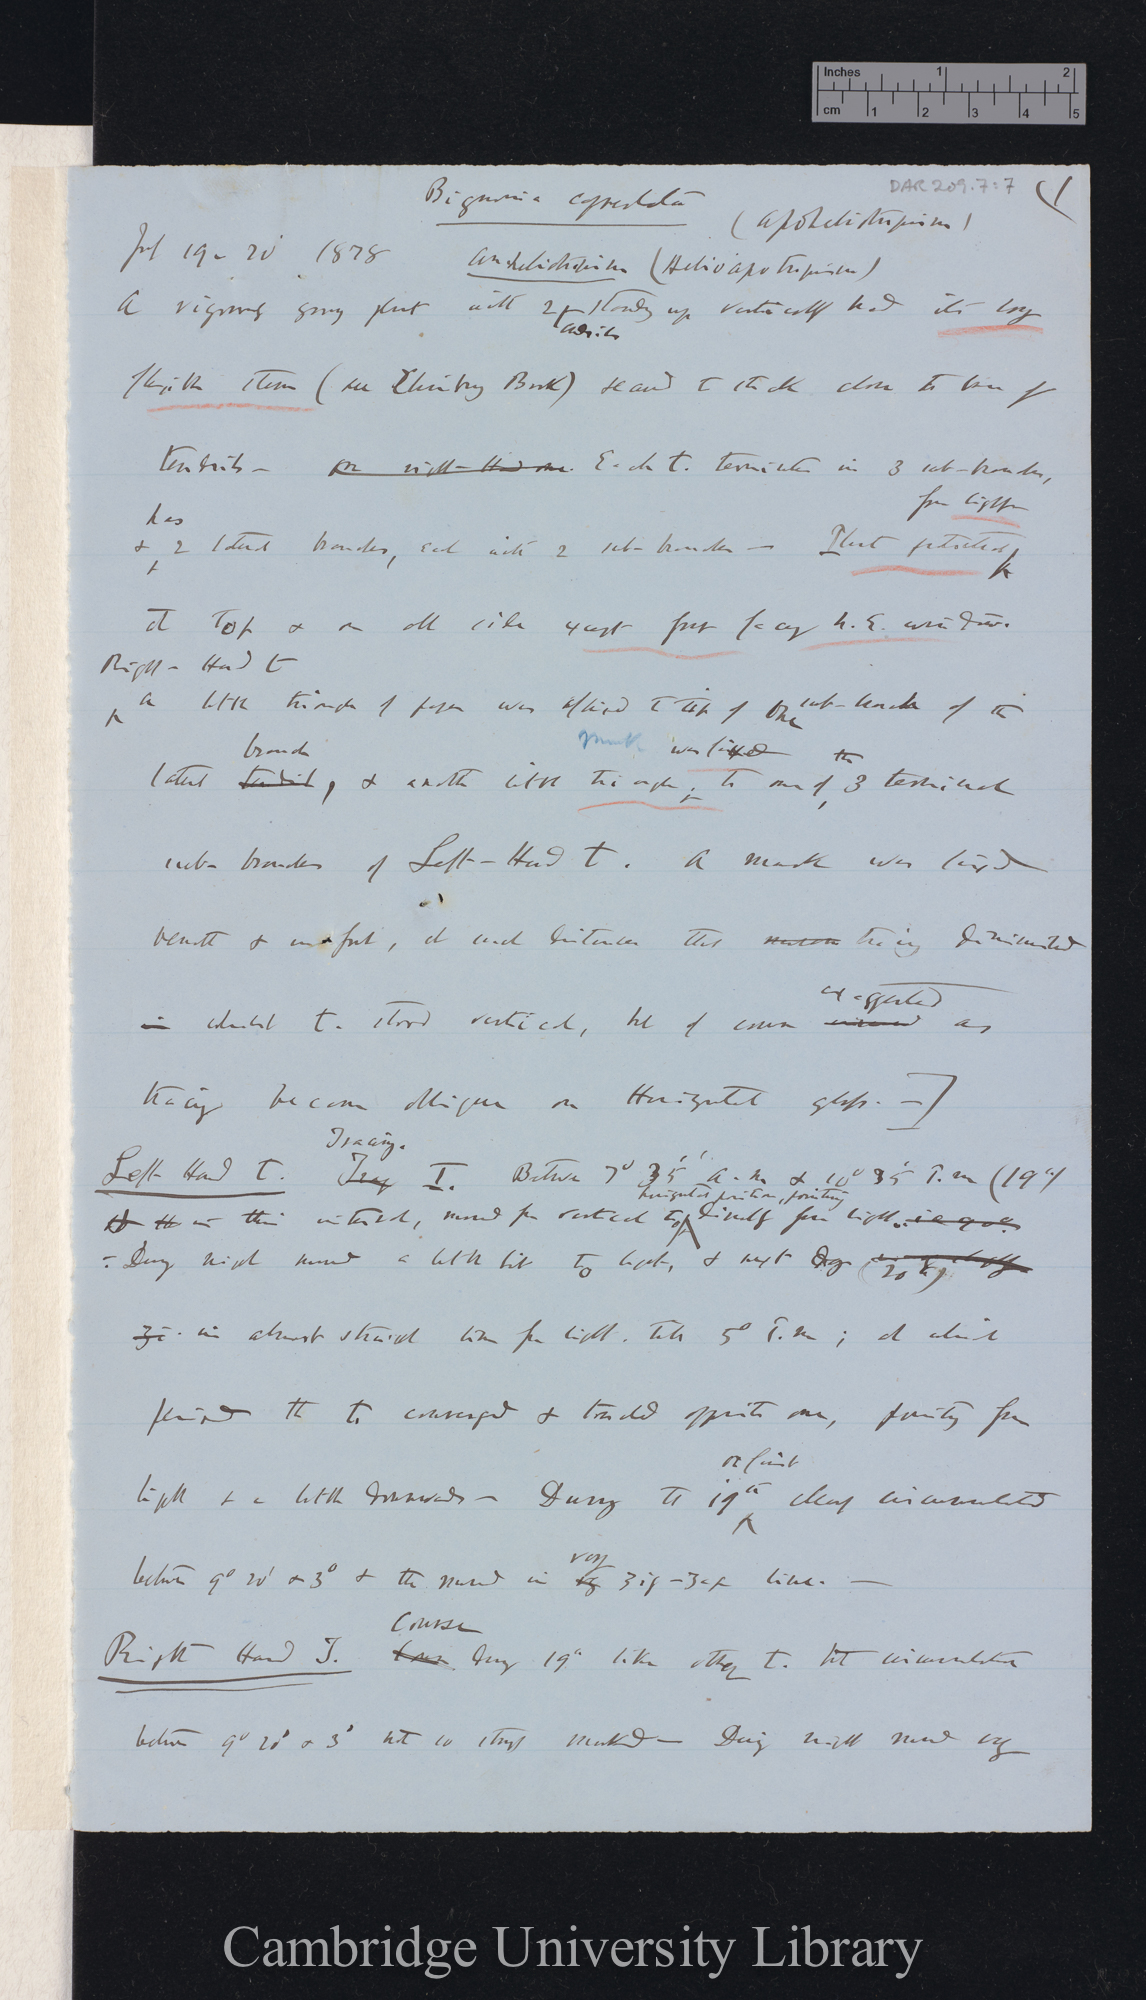 Inches 1 2
cm 1 2 3 4 5
DAR 209.7:7
(1
Bignonia capreolata
(Apheliotropism)
Jul 19 - 20 1878 (Helioapotropism)
A vigorous young plant with 2 standing up vertically had its long
tendrils
stem (see Climbing Book) secured to stick close to base of
tendrils — Each t. terminates in 3 sub-branches,
from light
has
& 2 lateral branches, each with 2 sub-branches — Plant protected
at top & on all sides except front facing N.E. window.
Right-Hand t
A little triangle of paper was affixed to tip of one sub-branch of the
mark was fixed the
branch
lateral tendril, & another little triangle to one of 3 terminal
sub-branches of Left-Hand t. A mark was fixed
beneath & in front, at such distances that tracing diminished
exaggerated
whilst t. stood vertical, but of course as
tracing became oblique on Horizontal glass. —]
Tracing.
Left Hand t. I. Between 7° 35' a.m & 10° 35' P.m (19th)
horizontal position, pointing
in this interval, moved from vertical to directly from light.
— During night moved a little bit to light, & next day (20th)
in almost straight line from light. till 5° P.m; at which
period the ts converged & touched opposite one, pointing from
on first
light & a little downwards — During the 19th circumnutated
between 9° 20' & 3° & then moved in very zig-zag line. —
Course
Right Hand T. during 19th like other t. but circumnutation
between 9° 20' & 3° not so strongly marked — During night moved
Cambridge University Library